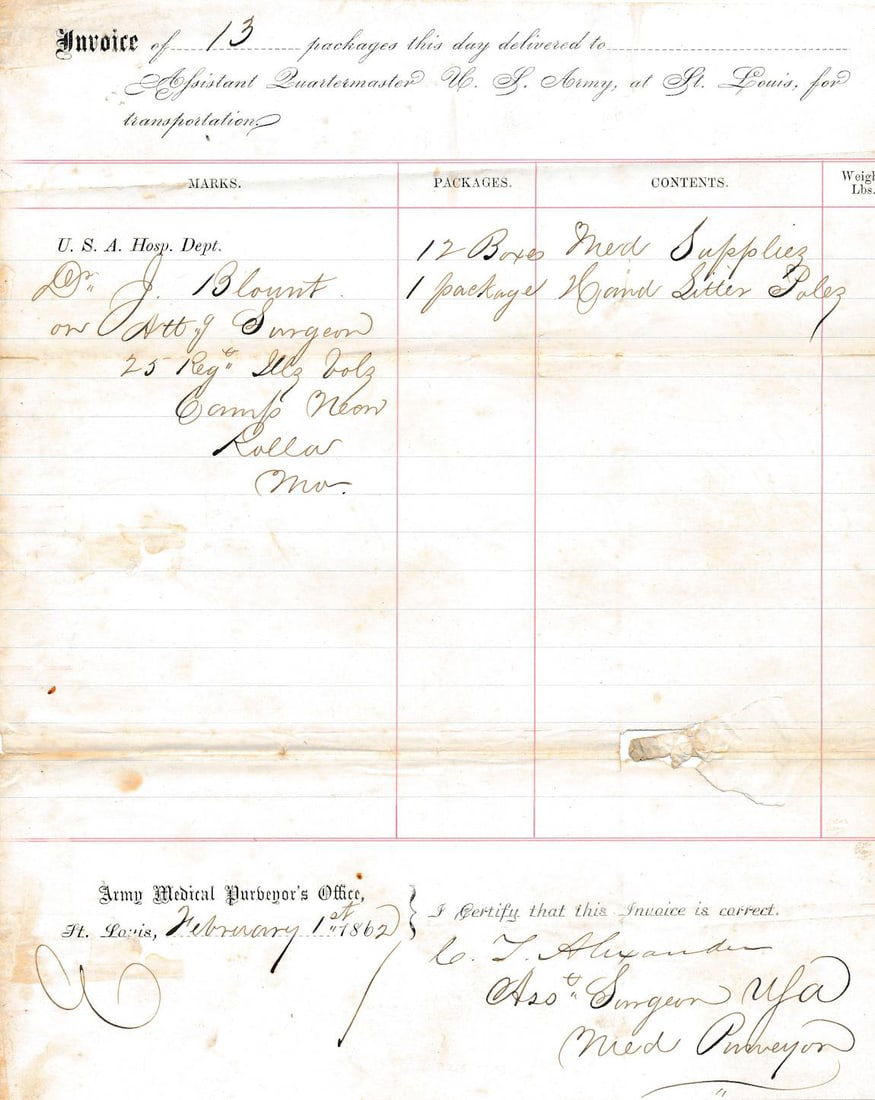 Invoice of 13 packages this day delivered to
Assistant Quartermaster U. S. Army, at St. Louis, for
transportation.
MARKS. PACKAGES. CONTENTS. Weigh
Lbs.
U. S. A. Hosp. Dept. 12 Boxes Med Supplies
Dr. J. Blount. 1 package Hand Litter Poles
or Att'g Surgeon
25 Regt Ills Vols
Camp Neon
Rolla
Mo.
Army Medical Purveyor's Office,
St. Louis, February 1st 1862
I Certify that this Invoice is correct.
C. T. Alexander
Asst Surgeon USA
Med Purveyor